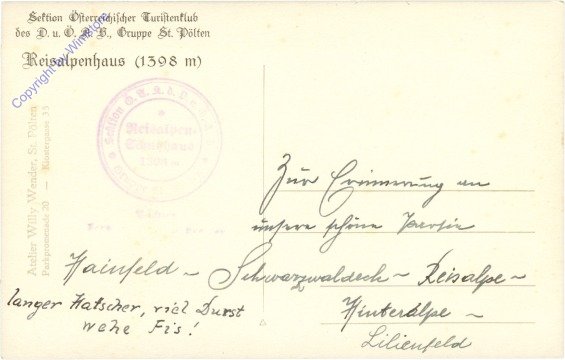 Sektion Österreichischer Turistenklub
des D. u. Ö. A. V., Gruppe St. Pölten
Reisalpenhaus (1398 m)
Copyright by Winstone
Atelier Willy Wender, St. Pölten
Parkpromenade 20 — Klostergasse 35
Sektion Ö. T. K. d. D. u. Ö. A. V.
Reisalpen-
Schutzhaus
1398 m
Zur Erinnerung an
unsere schöne Partie
Hainfeld - Schwarzwaldeck - Reisalpe -
Hinteralpe -
Lilienfeld
langer Hatscher, viel Durst
wehe Fis!